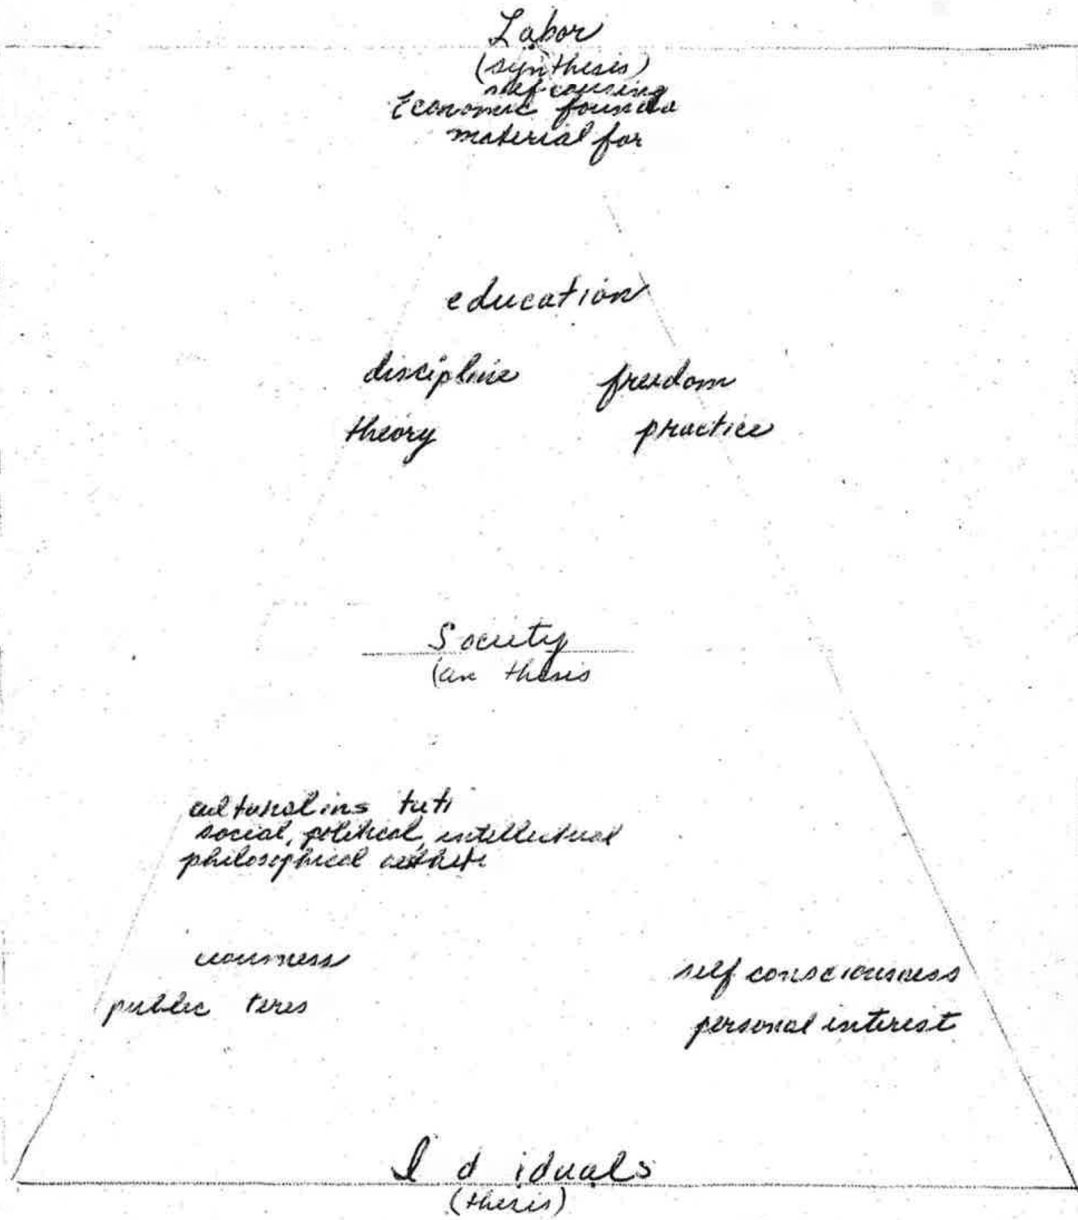 Labor
(synthesis)
self-causing
Economic founda
material for
education
discipline freedom
theory practice
Society
(an thesis
cultural ins tuti
social, political, intellectual
philosophical aestheti
ciousness
self consciousness
public teres
personal interest
I d iduals
(thesis)